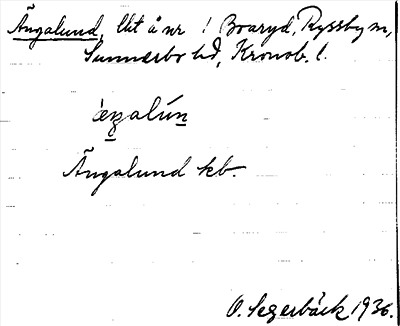 Ängalund, litt å nr 1 Boaryd, Ryssby sn,
Sunnerbo hd, Kronob. l.
æŋalún
Ängalund kb.
O. Segerbäck 1936.